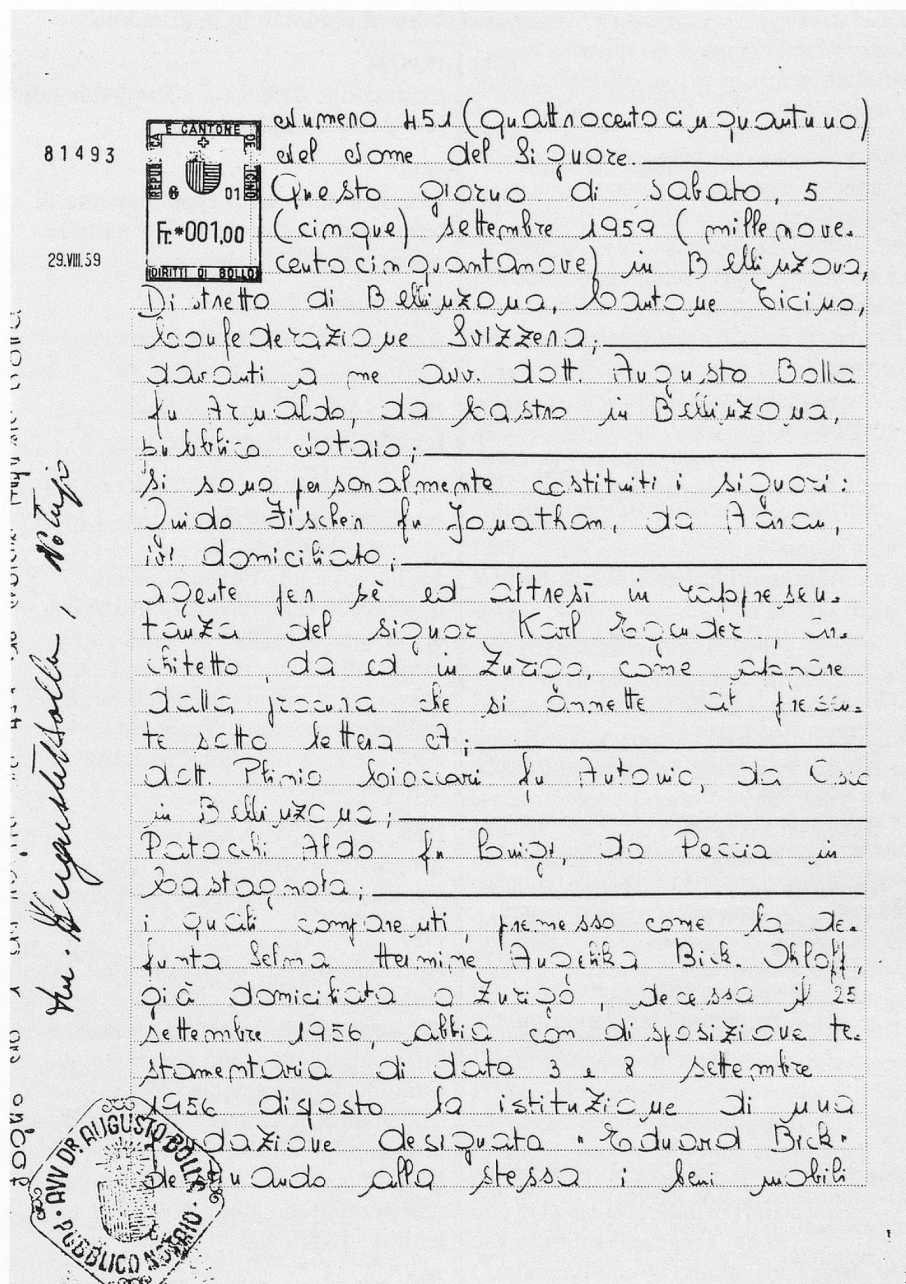 Numero 451 (quattrocentocinquantuno)
Nel Nome del Signore.
Questo giorno di sabato, 5
(cinque) settembre 1959 (millenove-
centocinquantanove) in Bellinzona,
Distretto di Bellinzona, Cantone Ticino,
Confederazione Svizzera;
davanti a me avv. dott. Augusto Bolla
fu Arnaldo, da Castro in Bellinzona,
pubblico Notaio;
si sono personalmente costituiti i signori:
Guido Fischer fu Jonathan, da Aarau,
ivi domiciliato;
agente per sè ed altresì in rappresen-
tanza del signor Karl Egender, ar-
chitetto, da ed in Zurigo, come appare
dalla procura che si annette al presen-
te sotto lettera A;
dott. Plinio Cioccari fu Antonio, da Osco
in Bellinzona;
Patocchi Aldo fu Luigi, da Peccia in
Castagnola;
i quali comparenti, premesso come la de-
funta Selma Hermine Angelika Bick-Ohloff,
già domiciliata a Zurigo, decessa il 25
settembre 1956, abbia con disposizione te-
stamentaria di data 3 e 8 settembre
1956 disposto la istituzione di una
fondazione designata "Eduard Bick"
devoluando alla stessa i beni mobili
81493
REPUBBLICA E CANTONE TICINO
01
Fr.*001,00
DIRITTI DI BOLLO
29.VIII.59
Avv. Augusto Bolla, Notaio
AVV. DR. AUGUSTO BOLLA
PUBBLICO NOTARIO